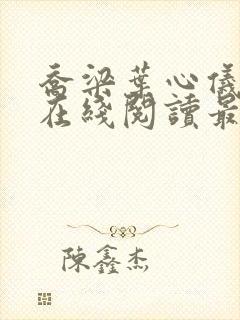 喬梁葉心儀
在綫閱讀最
陳鑫杰